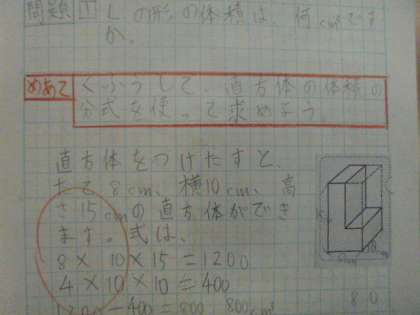 問題 1 Lの形の体積は、何cm³です
か。
めあて くふうして、直方体の体積の
公式を使って求めよう。
直方体をつけたすと、
たて8cm、横10cm、高
さ15cmの直方体ができ
ます。式は、
8×10×15=1200
4×10×10=400
1200-400=800 800cm³